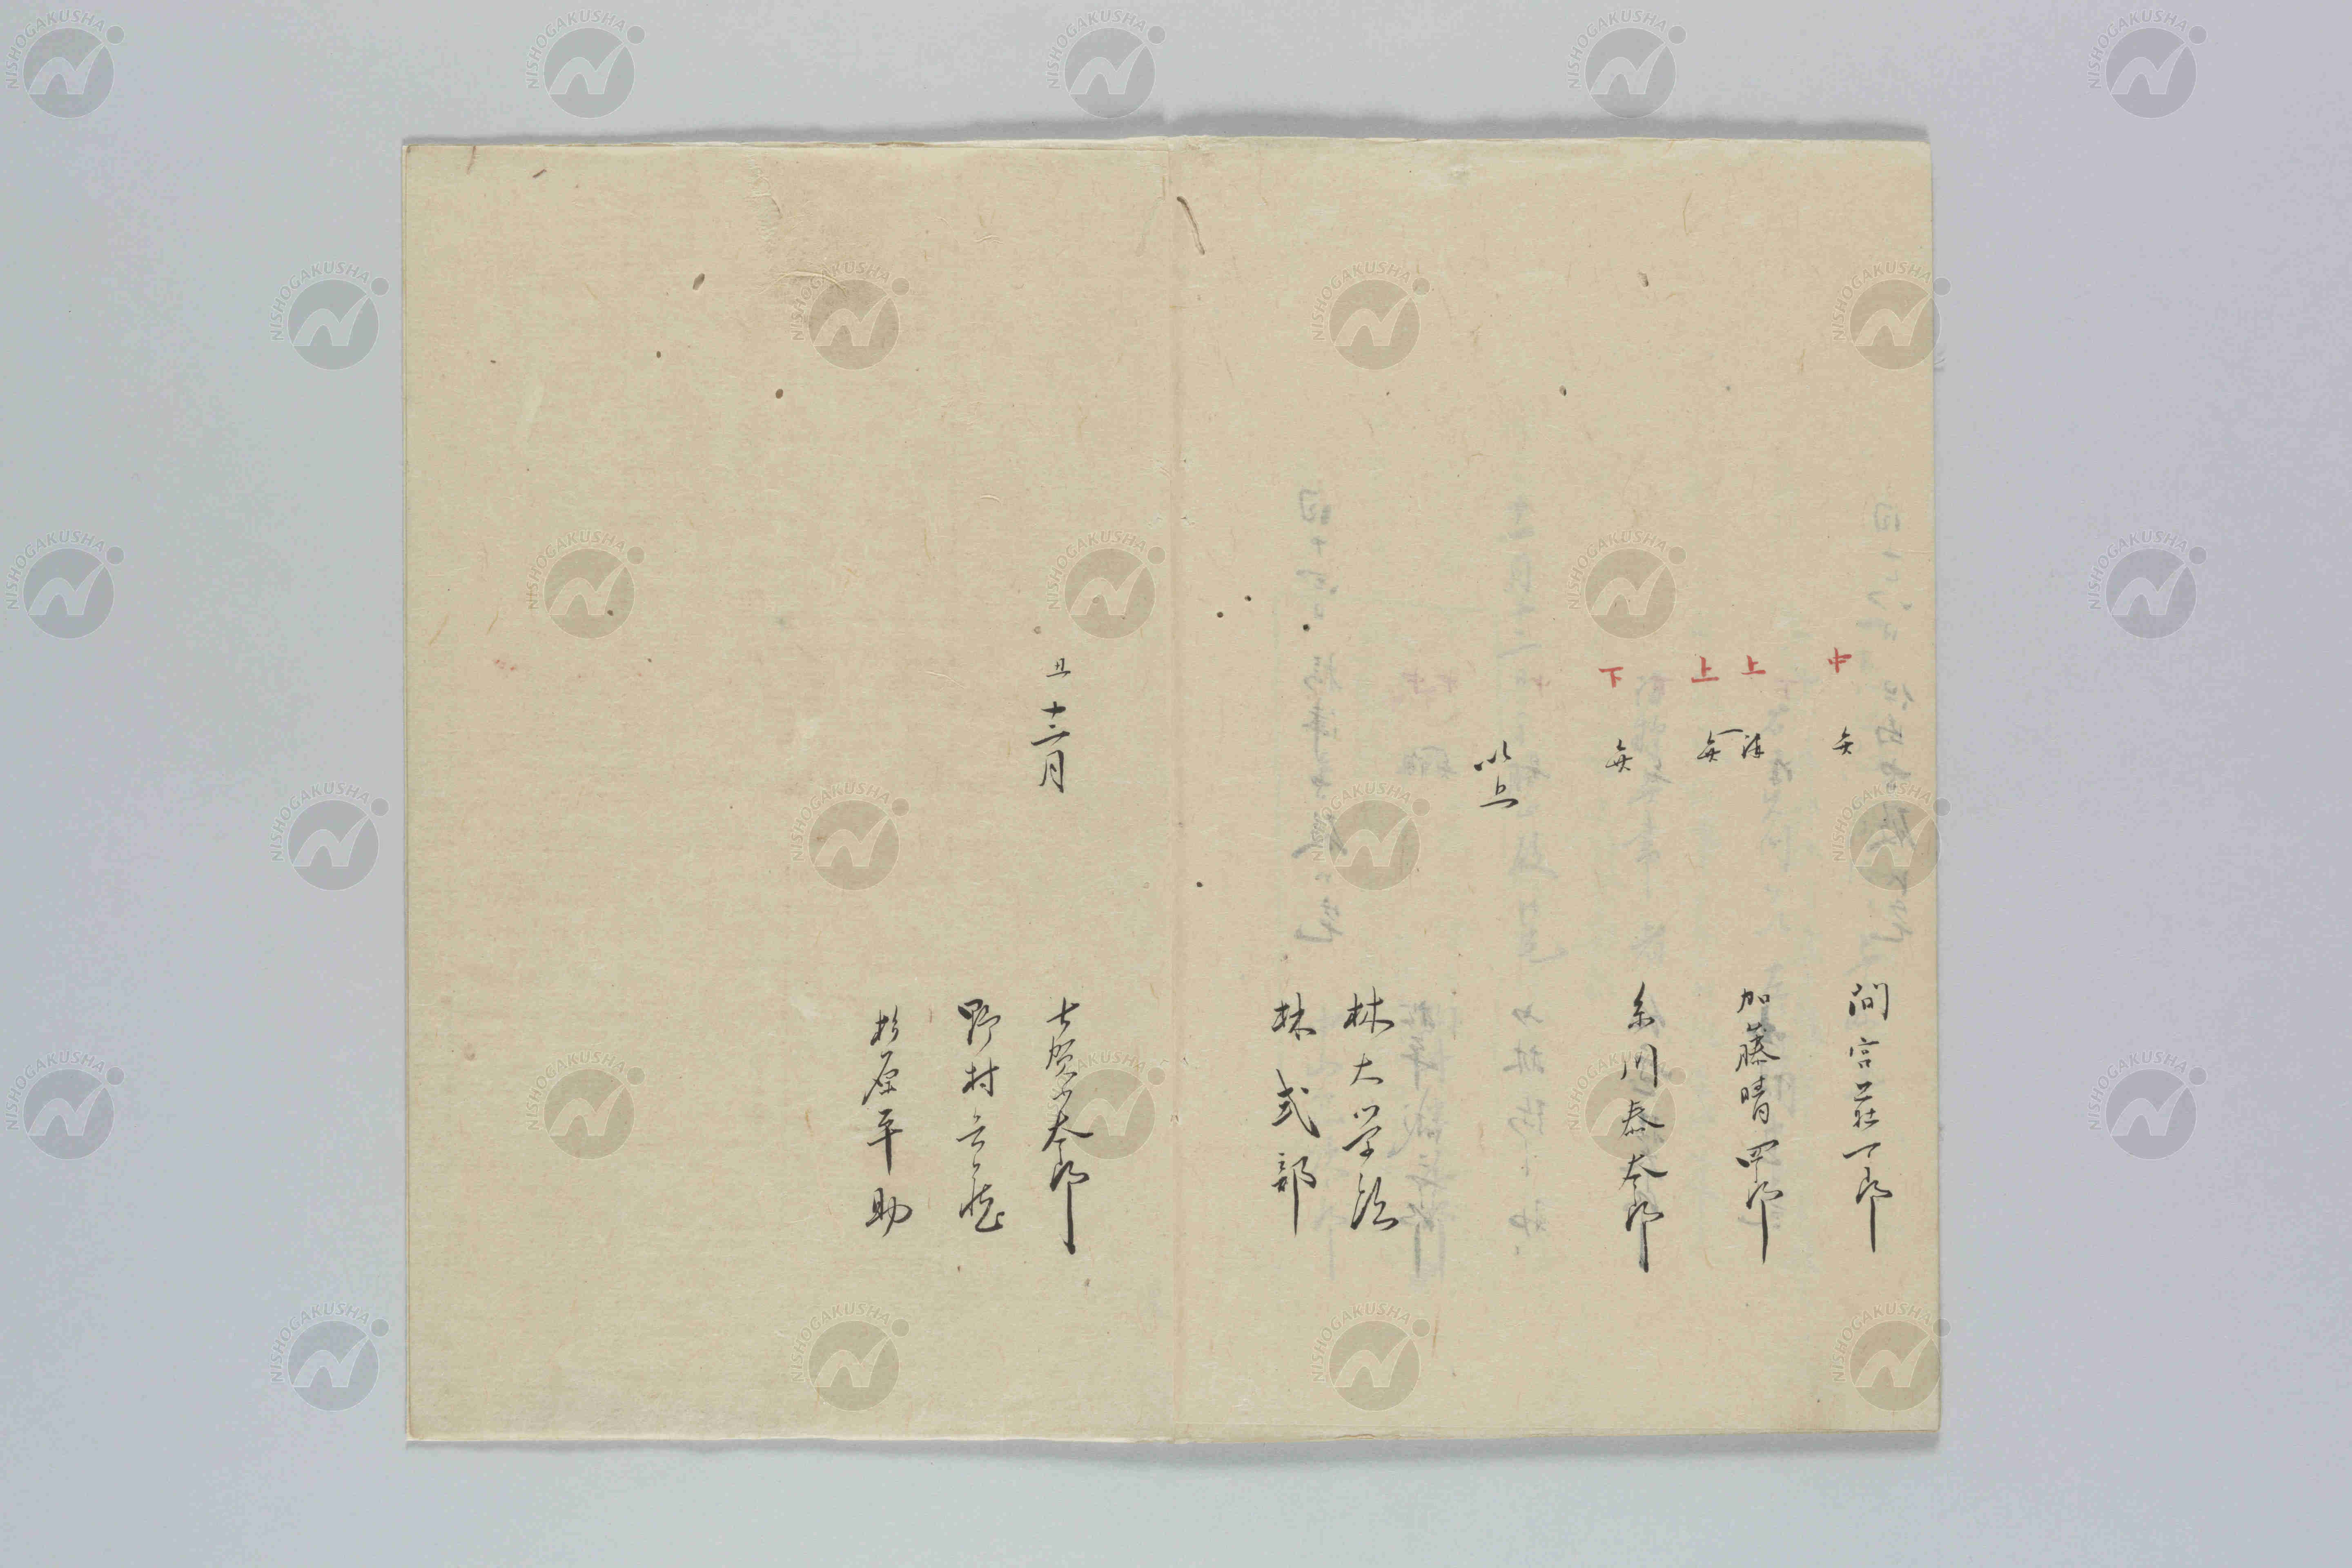 中 間宮荘一郎
上 加藤晴四郎
上
下 無 糸川泰太郎
以上
林大学頭
林式部
丑 十二月
古賀謹太郎
野村兵蔵
杉原平助
NISHOGAKUSHA